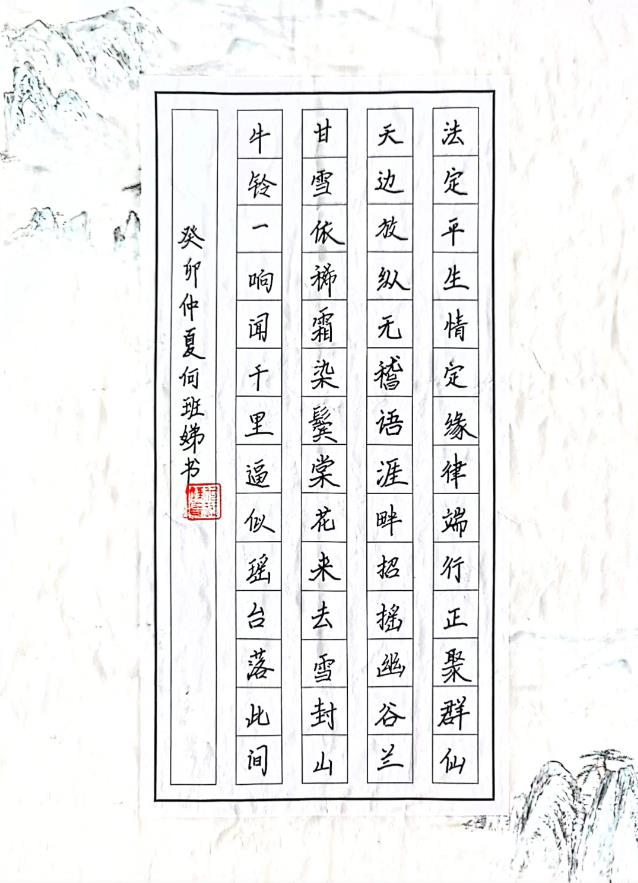 法定平生情定缘律端行正聚群仙
天边放纵无稽语涯畔招摇幽谷兰
甘雪依稀霜染鬓棠花来去雪封山
牛铃一响闻千里逼似瑶台落此间
癸卯仲夏何班娣书